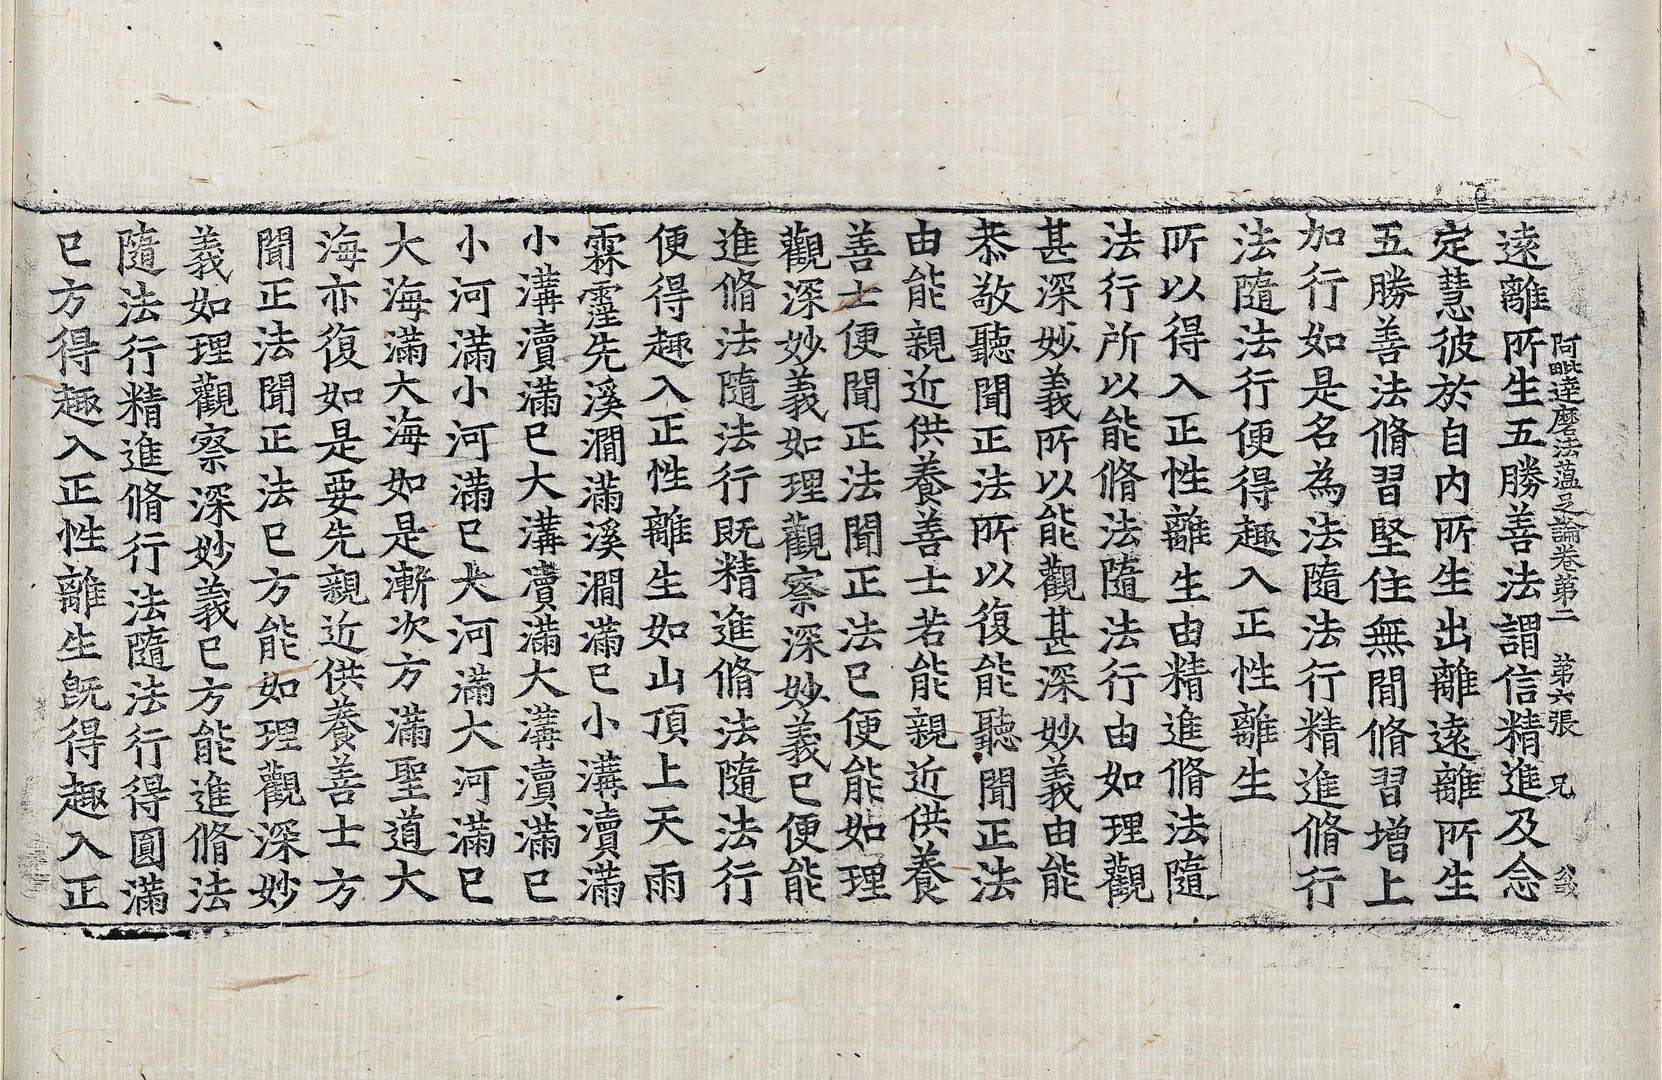 阿毗達麼法蘊足論卷第二 第六張 兄
遠離所生五勝善法謂信精進及念
定慧彼於自內所生出離遠離所生
五勝善法脩習堅住無閒脩習增上
加行如是名為法隨法行精進脩行
法隨法行便得趣入正性離生
所以得入正性離生由精進脩法隨
法行所以能脩法隨法行由如理觀
甚深妙義所以能觀甚深妙義由能
恭敬聽聞正法所以復能聽聞正法
由能親近供養善士若能親近供養
善士便聞正法聞正法已便能如理
觀深妙義如理觀察深妙義已便能
進脩法隨法行既精進脩法隨法行
便得趣入正性離生如山頂上天雨
霖霪先溪澗滿溪澗滿已小溝瀆滿
小溝瀆滿已大溝瀆滿大溝瀆滿已
小河滿小河滿已大河滿大河滿已
大海滿大海如是漸次方滿聖道大
海亦復如是要先親近供養善士方
聞正法聞正法已方能如理觀深妙
義如理觀察深妙義已方能進脩法
隨法行精進脩行法隨法行得圓滿
已方得趣入正性離生既得趣入正